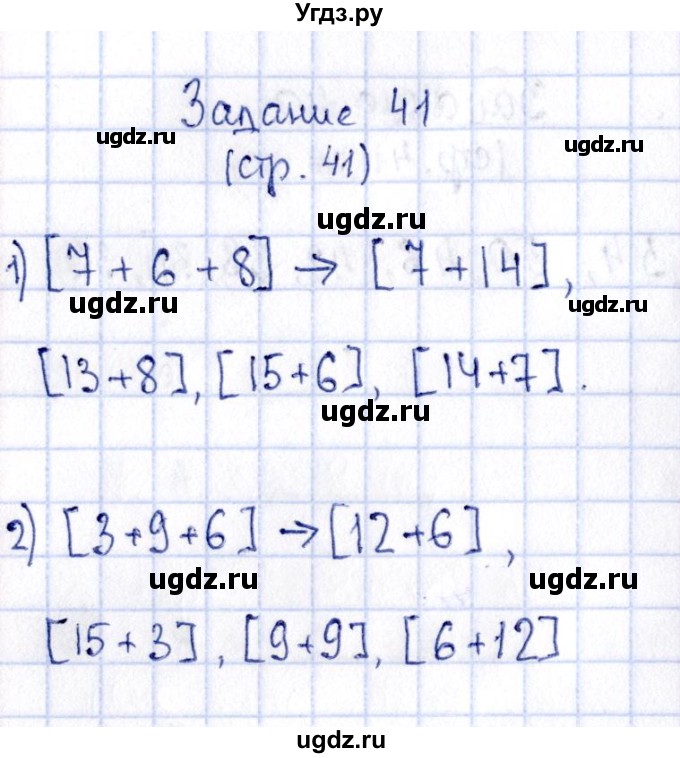 Угдз.ру
Задание 41
ugdz.ru
ugdz.ru
(стр. 41)
ugdz.ru
1) [7 + 6 + 8] → [7 + 14],
ugdz.ru
ugdz.ru
[13+8], [15+6], [14+7].
ugdz.ru
2) [3+9+6] → [12+6],
ugdz.ru
ugdz.ru
[15+3], [9+9], [6+12]
ugdz.ru